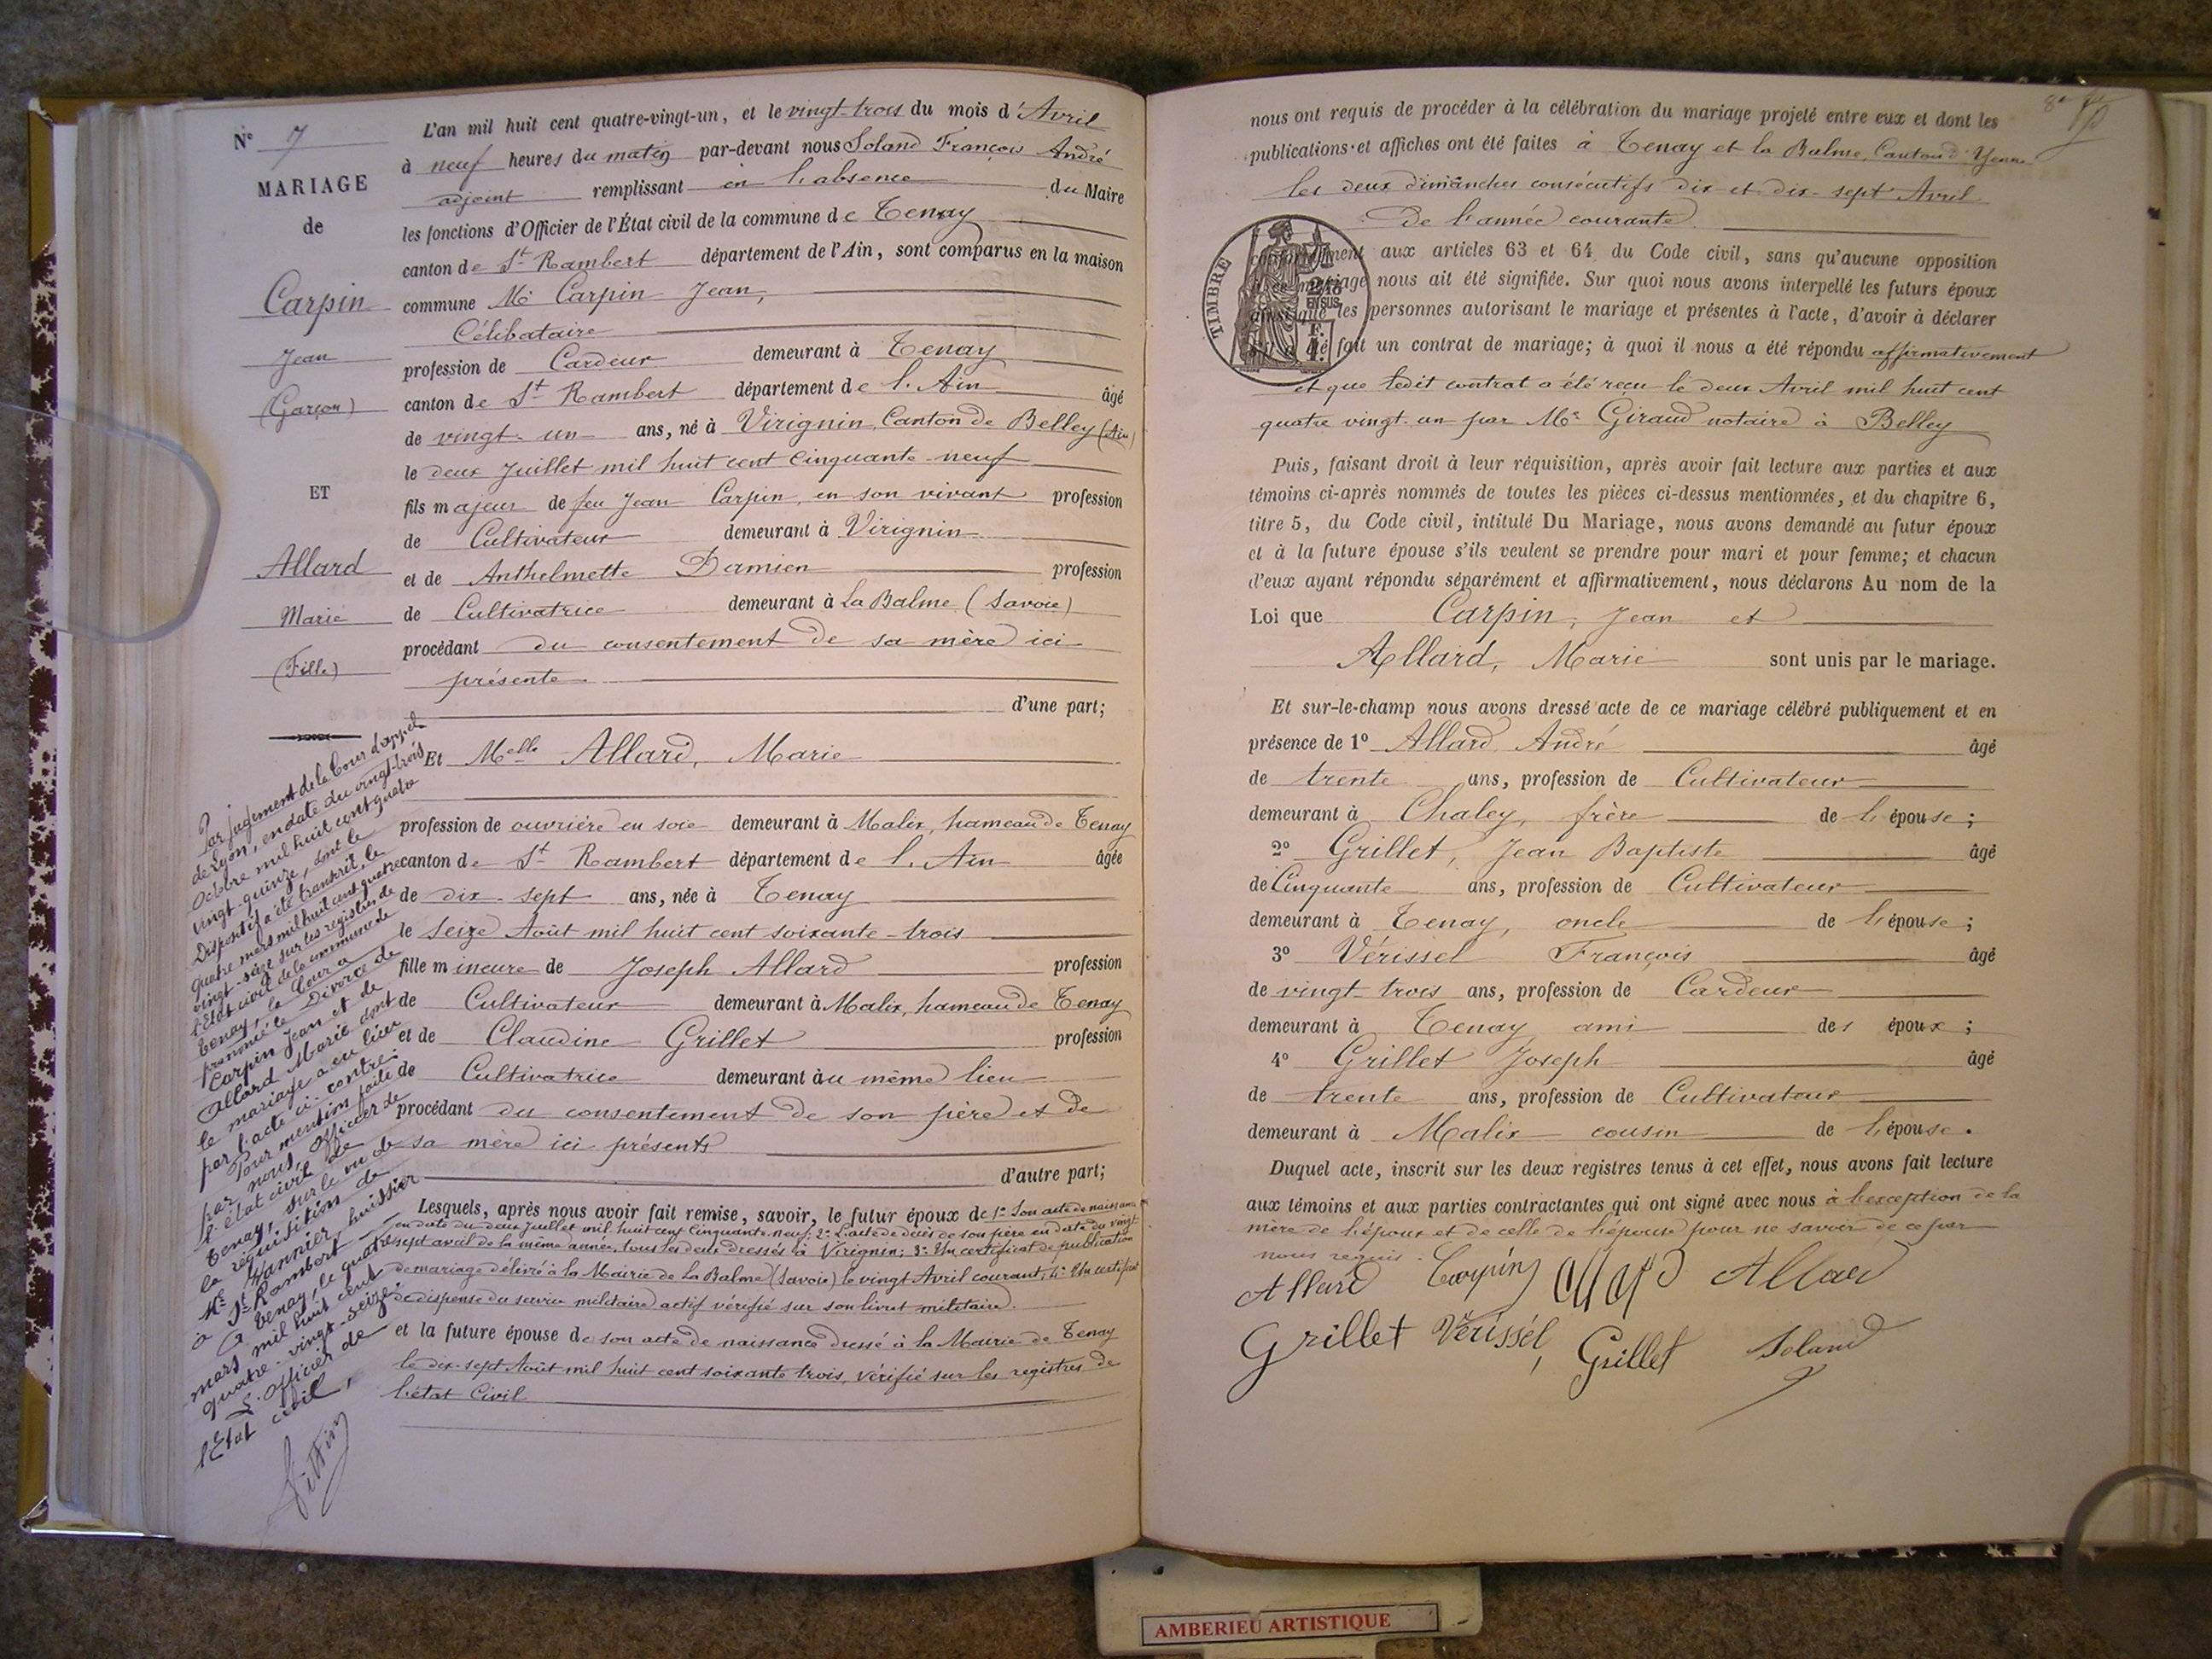 N° 7
MARIAGE
de
Carpin
Jean
(Garçon)
ET
Allard
Marie
(Fille)
Par jugement de la Cour d'appel
de Lyon, en date du vingt-trois
Octobre mil huit cent quatre
vingt-quinze, dont le
Dispositif a été transcrit, le
quatre mars mil huit cent quatre
vingt-seize sur les registres de
l'état civil de la commune de
Tenay, la Cour a
prononcé le Divorce de
Carpin Jean et de
Allard Marie dont
le mariage a eu lieu
par l'acte ci-contre.
Pour mention faite
par nous, officier de
l'état civil de
Tenay, sur le vu de
la réquisition de
Me Wannier, huissier
à St Rambert
A Tenay, le quatre
mars mil huit cent
quatre-vingt-seize.
L'officier de
l'Etat civil,
L'an mil huit cent quatre-vingt-un, et le vingt-trois du mois d'Avril
à neuf heures du matin par-devant nous Soland François André
adjoint remplissant en l'absence du Maire
les fonctions d'Officier de l'État civil de la commune de Tenay
canton de St Rambert département de l'Ain, sont comparus en la maison
commune Mr Carpin Jean,
Célibataire
profession de Cardeur demeurant à Tenay
canton de St Rambert département de l'Ain âgé
de vingt-un ans, né à Virignin, Canton de Belley (Ain)
le deux Juillet mil huit cent Cinquante-neuf
fils majeur de feu Jean Carpin, en son vivant profession
de Cultivateur demeurant à Virignin
et de Anthelmette Damien profession
de Cultivatrice demeurant à La Balme (Savoie)
procédant du consentement de sa mère ici
présente
d'une part;
Et Melle Allard, Marie
profession de ouvrière en soie demeurant à Malix, hameau de Tenay
canton de St Rambert département de l'Ain âgée
de dix-sept ans, née à Tenay
le Seize Août mil huit cent soixante-trois
fille mineure de Joseph Allard profession
de Cultivateur demeurant à Malix, hameau de Tenay
et de Claudine Grillet profession
de Cultivatrice demeurant au même lieu
procédant du consentement de son père et de
sa mère ici présents
d'autre part;
Lesquels, après nous avoir fait remise, savoir, le futur époux de 1° Son acte de naissance
en date du deux Juillet mil huit cent Cinquante-neuf; 2° L'acte de décès de son père en date du vingt
sept avril de la même année, tous les deux dressés à Virignin; 3° Un certificat de publication
de mariage délivré à la Mairie de La Balme (Savoie) le vingt Avril courant; 4° Un certificat
de dispense du service militaire actif vérifié sur son livret militaire.
et la future épouse de son acte de naissance dressé à la Mairie de Tenay
le dix-sept Août mil huit cent soixante trois, vérifié sur les registres de
l'état Civil
nous ont requis de procéder à la célébration du mariage projeté entre eux et dont les
publications et affiches ont été faites à Tenay et la Balme, Canton d'Yenne
les deux dimanches consécutifs dix et dix-sept Avril
de l'année courante
conformément aux articles 63 et 64 du Code civil, sans qu'aucune opposition
à ce mariage nous ait été signifiée. Sur quoi nous avons interpellé les futurs époux
ainsi que les personnes autorisant le mariage et présentes à l'acte, d'avoir à déclarer
s'il a été fait un contrat de mariage; à quoi il nous a été répondu affirmativement
TIMBRE
et que ledit contrat a été reçu le deux Avril mil huit cent
quatre vingt-un par Me Giraud notaire à Belley
Puis, faisant droit à leur réquisition, après avoir fait lecture aux parties et aux
témoins ci-après nommés de toutes les pièces ci-dessus mentionnées, et du chapitre 6,
titre 5, du Code civil, intitulé Du Mariage, nous avons demandé au futur époux
et à la future épouse s'ils veulent se prendre pour mari et pour femme; et chacun
d'eux ayant répondu séparément et affirmativement, nous déclarons Au nom de la
Loi que Carpin, Jean et
Allard, Marie sont unis par le mariage.
Et sur-le-champ nous avons dressé acte de ce mariage célébré publiquement et en
présence de 1° Allard André âgé
de trente ans, profession de Cultivateur
demeurant à Chaley, frère de l'épouse;
2° Grillet, Jean Baptiste âgé
de Cinquante ans, profession de Cultivateur
demeurant à Tenay, oncle de l'épouse;
3° Vérissel François âgé
de vingt-trois ans, profession de Cardeur
demeurant à Tenay ami des époux;
4° Grillet Joseph âgé
de trente ans, profession de Cultivateur
demeurant à Malix cousin de l'épouse.
Duquel acte, inscrit sur les deux registres tenus à cet effet, nous avons fait lecture
aux témoins et aux parties contractantes qui ont signé avec nous à l'exception de la
mère de l'époux et de celle de l'épouse pour ne savoir de ce par
nous requis.
Allard Carpin Allard Allard
Grillet Vérissél, Grillet Soland
AMBERIEU ARTISTIQUE